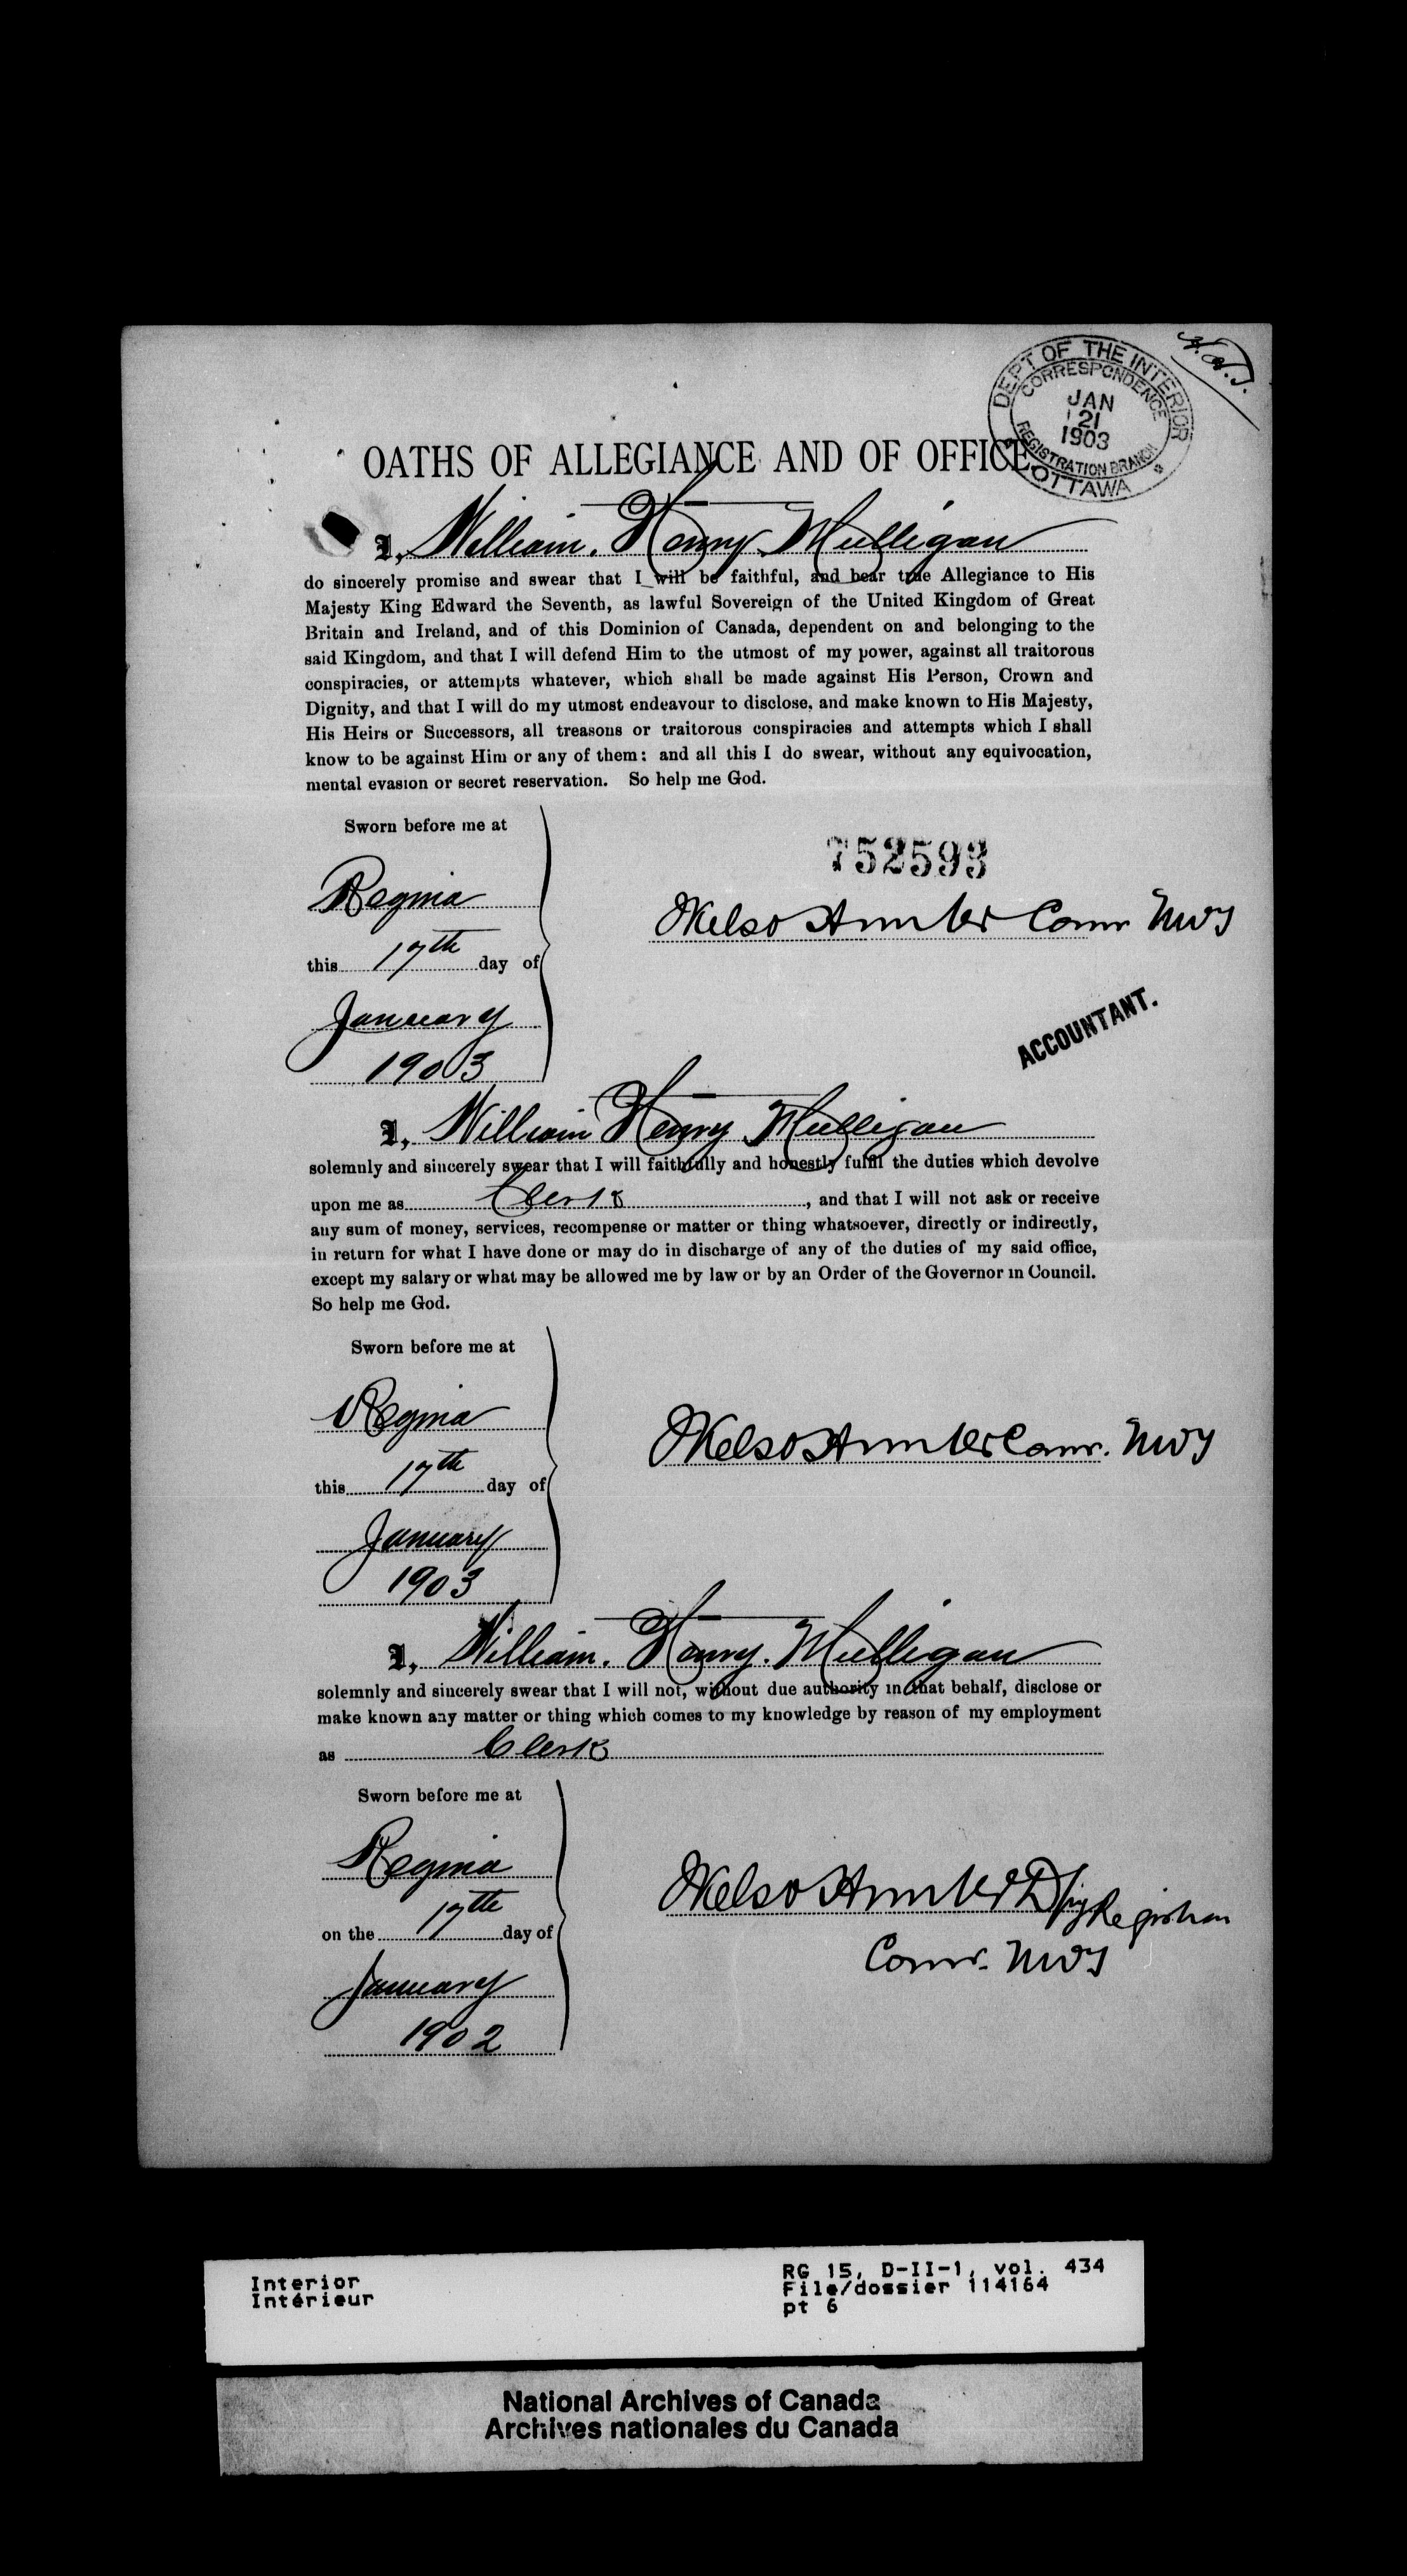 DEPT OF THE INTERIOR
CORRESPONDENCE
JAN
21
1903
REGISTRATION BRANCH
OTTAWA
OATHS OF ALLEGIANCE AND OF OFFICE.
I, William. Henry. Mulligan
do sincerely promise and swear that I will be faithful, and bear true Allegiance to His
Majesty King Edward the Seventh, as lawful Sovereign of the United Kingdom of Great
Britain and Ireland, and of this Dominion of Canada, dependent on and belonging to the
said Kingdom, and that I will defend Him to the utmost of my power, against all traitorous
conspiracies, or attempts whatever, which shall be made against His Person, Crown and
Dignity, and that I will do my utmost endeavour to disclose, and make known to His Majesty,
His Heirs or Successors, all treasons or traitorous conspiracies and attempts which I shall
know to be against Him or any of them: and all this I do swear, without any equivocation,
mental evasion or secret reservation. So help me God.
Sworn before me at
752593
Regina
Kelso Hunter Comr NWT
this 17th day of
January
1903
ACCOUNTANT.
I, William Henry Mulligan
solemnly and sincerely swear that I will faithfully and honestly fulfil the duties which devolve
upon me as Clerk, and that I will not ask or receive
any sum of money, services, recompense or matter or thing whatsoever, directly or indirectly,
in return for what I have done or may do in discharge of any of the duties of my said office,
except my salary or what may be allowed me by law or by an Order of the Governor in Council.
So help me God.
Sworn before me at
Regina
Kelso Hunter Comr. NWT
this 17th day of
January
1903
I, William. Henry. Mulligan
solemnly and sincerely swear that I will not, without due authority in that behalf, disclose or
make known any matter or thing which comes to my knowledge by reason of my employment
as Clerk
Sworn before me at
Regina
Kelso Hunter Dpy Registrar
on the 17th day of
Comr. NWT
January
1902
Interior
Intérieur
RG 15, D-II-1, vol. 434
File/dossier 114164
pt 6
National Archives of Canada
Archives nationales du Canada